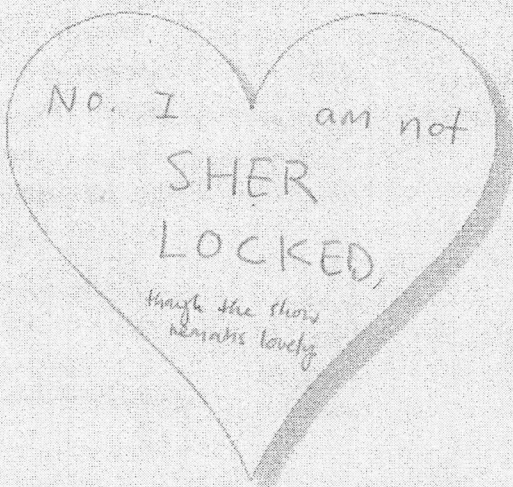 No. I am not
SHER
LOCKED,
though the show
remains lovely